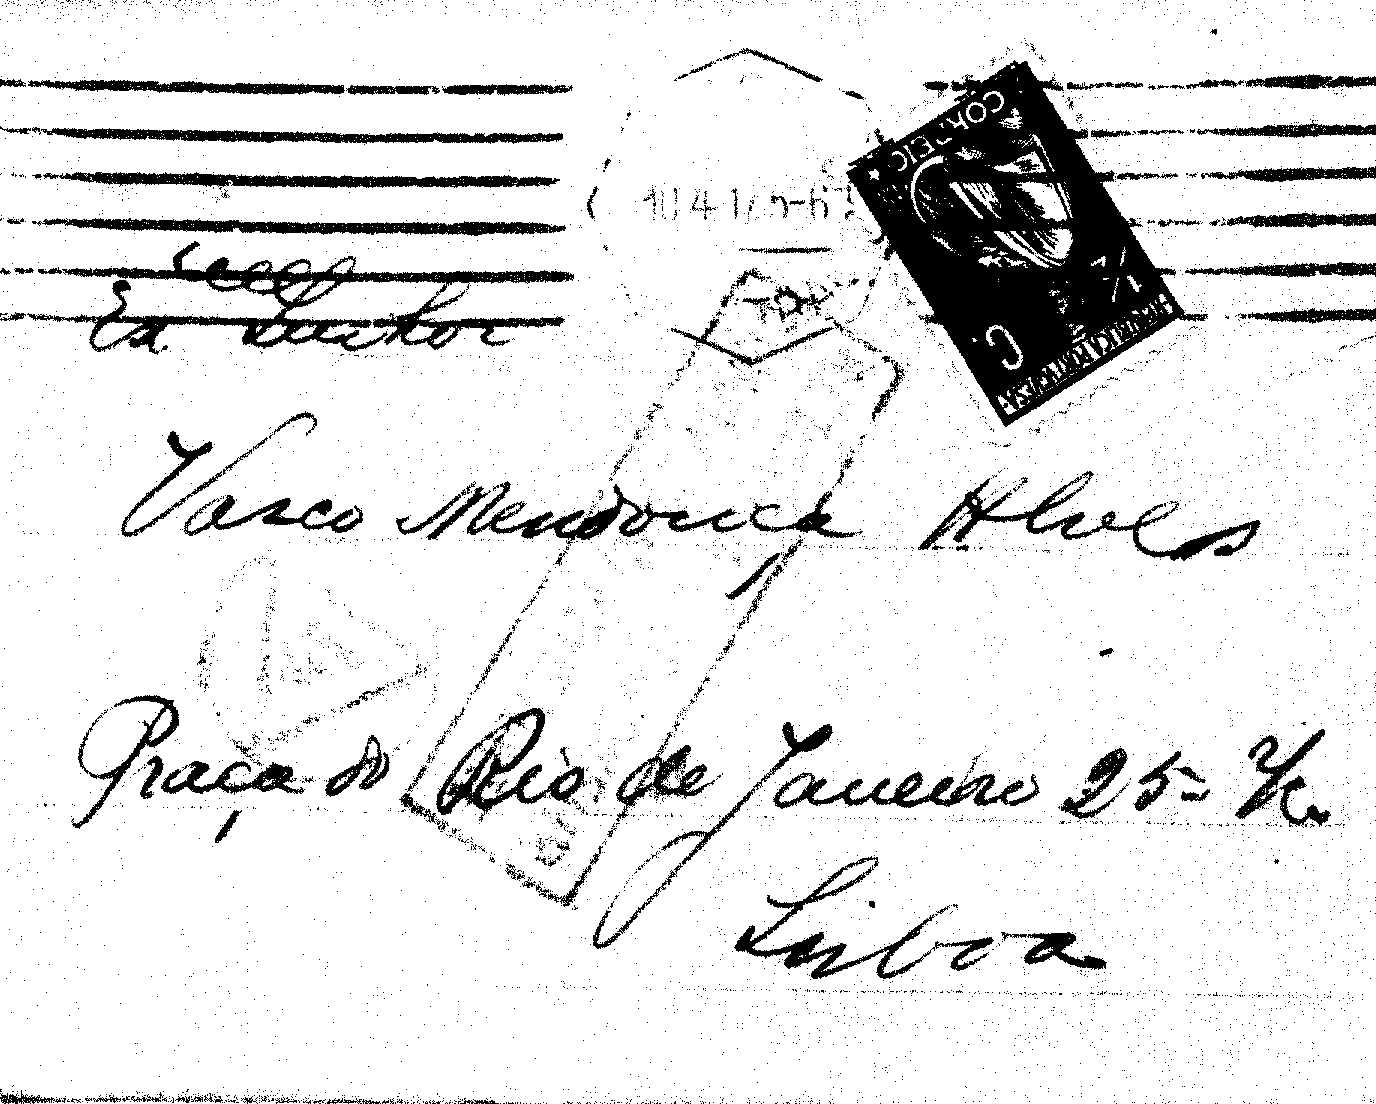 10.4.1
CORREIO
REPÚBLICA PORTUGUESA
Vasco Mendonça Alves
Praça do Rio de Janeiro 25-
Lisboa